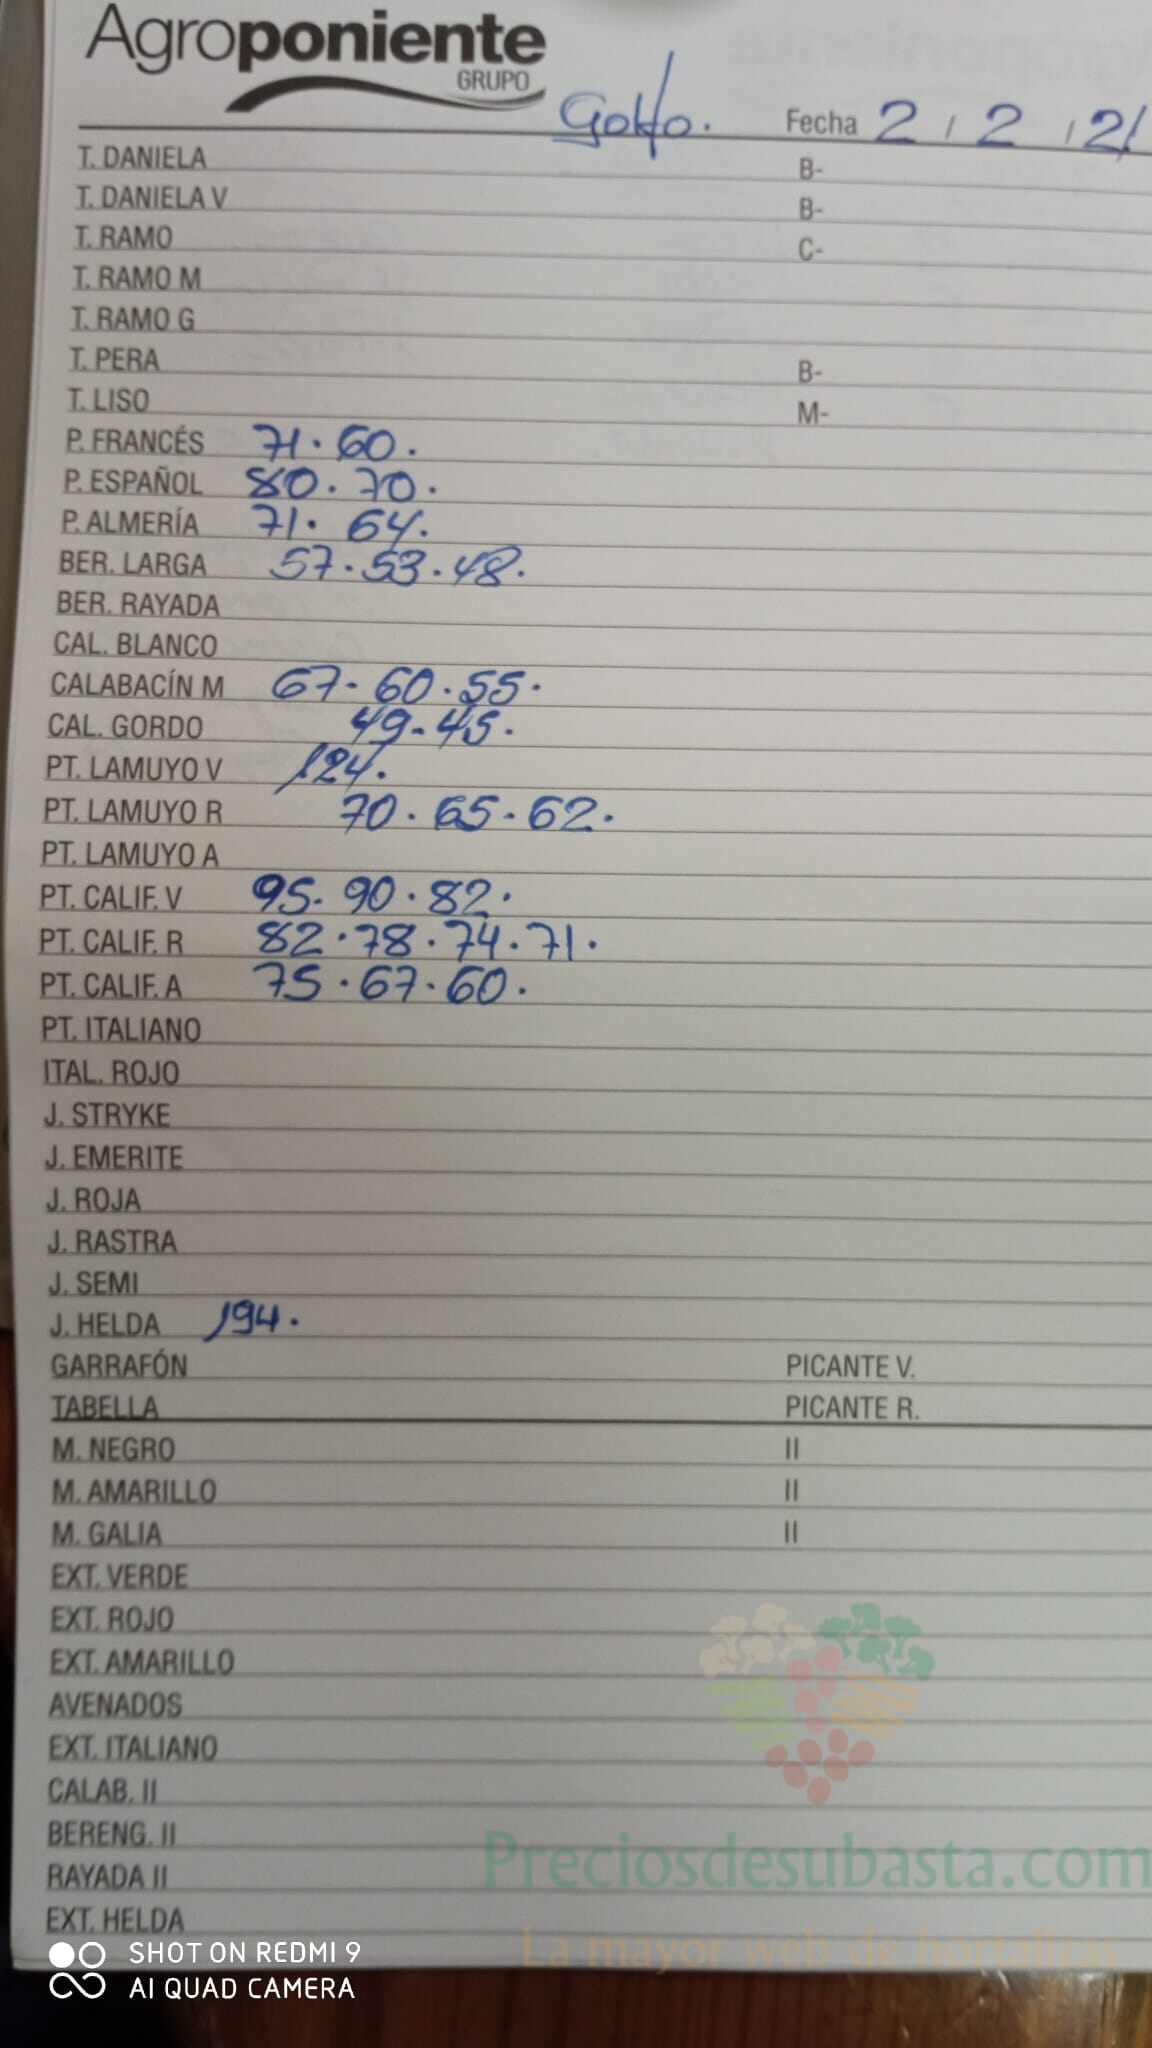 Agroponiente
GRUPO
Golfo. Fecha 2 / 2 / 21
T. DANIELA B-
T. DANIELA V B-
T. RAMO C-
T. RAMO M
T. RAMO G
T. PERA B-
T. LISO M-
P. FRANCÉS 71. 60.
P. ESPAÑOL 80. 70.
P. ALMERÍA 71. 64.
BER. LARGA 57. 53. 48.
BER. RAYADA
CAL. BLANCO
CALABACÍN M 67- 60. 55.
CAL. GORDO 49- 45.
PT. LAMUYO V 124.
PT. LAMUYO R 70. 65. 62.
PT. LAMUYO A
PT. CALIF. V 95. 90. 82.
PT. CALIF. R 82. 78. 74. 71.
PT. CALIF. A 75. 67. 60.
PT. ITALIANO
ITAL. ROJO
J. STRYKE
J. EMERITE
J. ROJA
J. RASTRA
J. SEMI
J. HELDA 194.
GARRAFÓN PICANTE V.
TABELLA PICANTE R.
M. NEGRO II
M. AMARILLO II
M. GALIA II
EXT. VERDE
EXT. ROJO
EXT. AMARILLO
AVENADOS
EXT. ITALIANO
CALAB. II
BERENG. II
RAYADA II
EXT. HELDA
Preciosdesubasta.com
La mayor web de hortalizas
SHOT ON REDMI 9
AI QUAD CAMERA